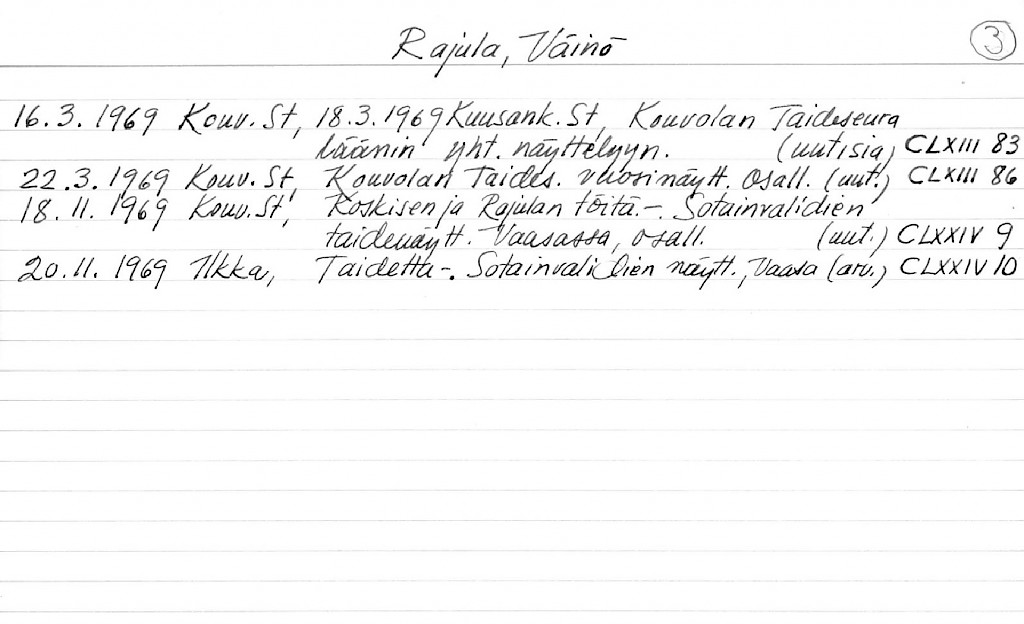 Rajula, Väinö 3
16.3.1969 Kouv. St, 18.3.1969 Kuusank. St, Kouvolan Taideseura
läänin yht. näyttelyyn. (uutisia) CLXIII 83
22.3.1969 Kouv. St, Kouvolan Taides. vuosinäytt. osall. (uut.) CLXIII 86
18.11.1969 Kouv. St, Koskisen ja Rajulan töitä -. Sotainvalidien
taidenäytt. Vaasassa, osall. (uut.) CLXXIV 9
20.11.1969 Ilkka, Taidetta -. Sotainvalidien näytt., Vaasa (arv.) CLXXIV 10